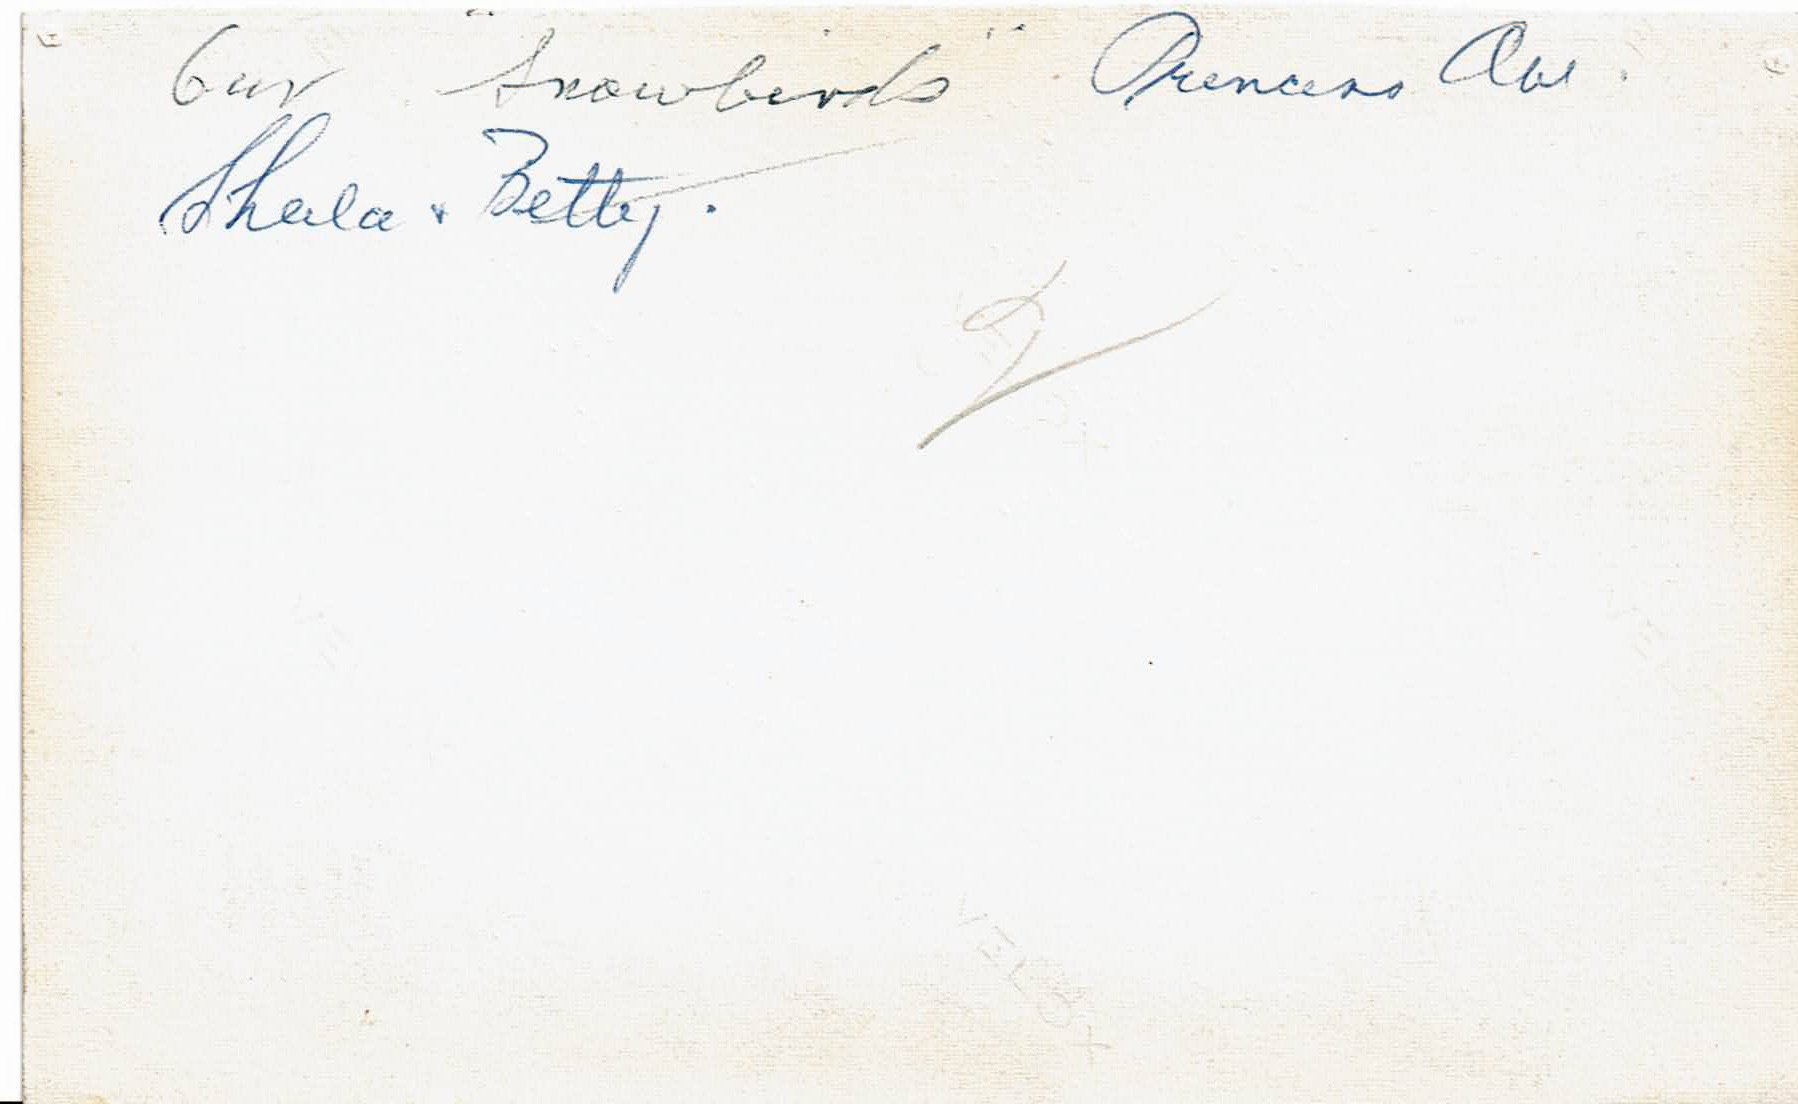 Our "Snowbirds" Princess Ave.
Sheila & Betty.